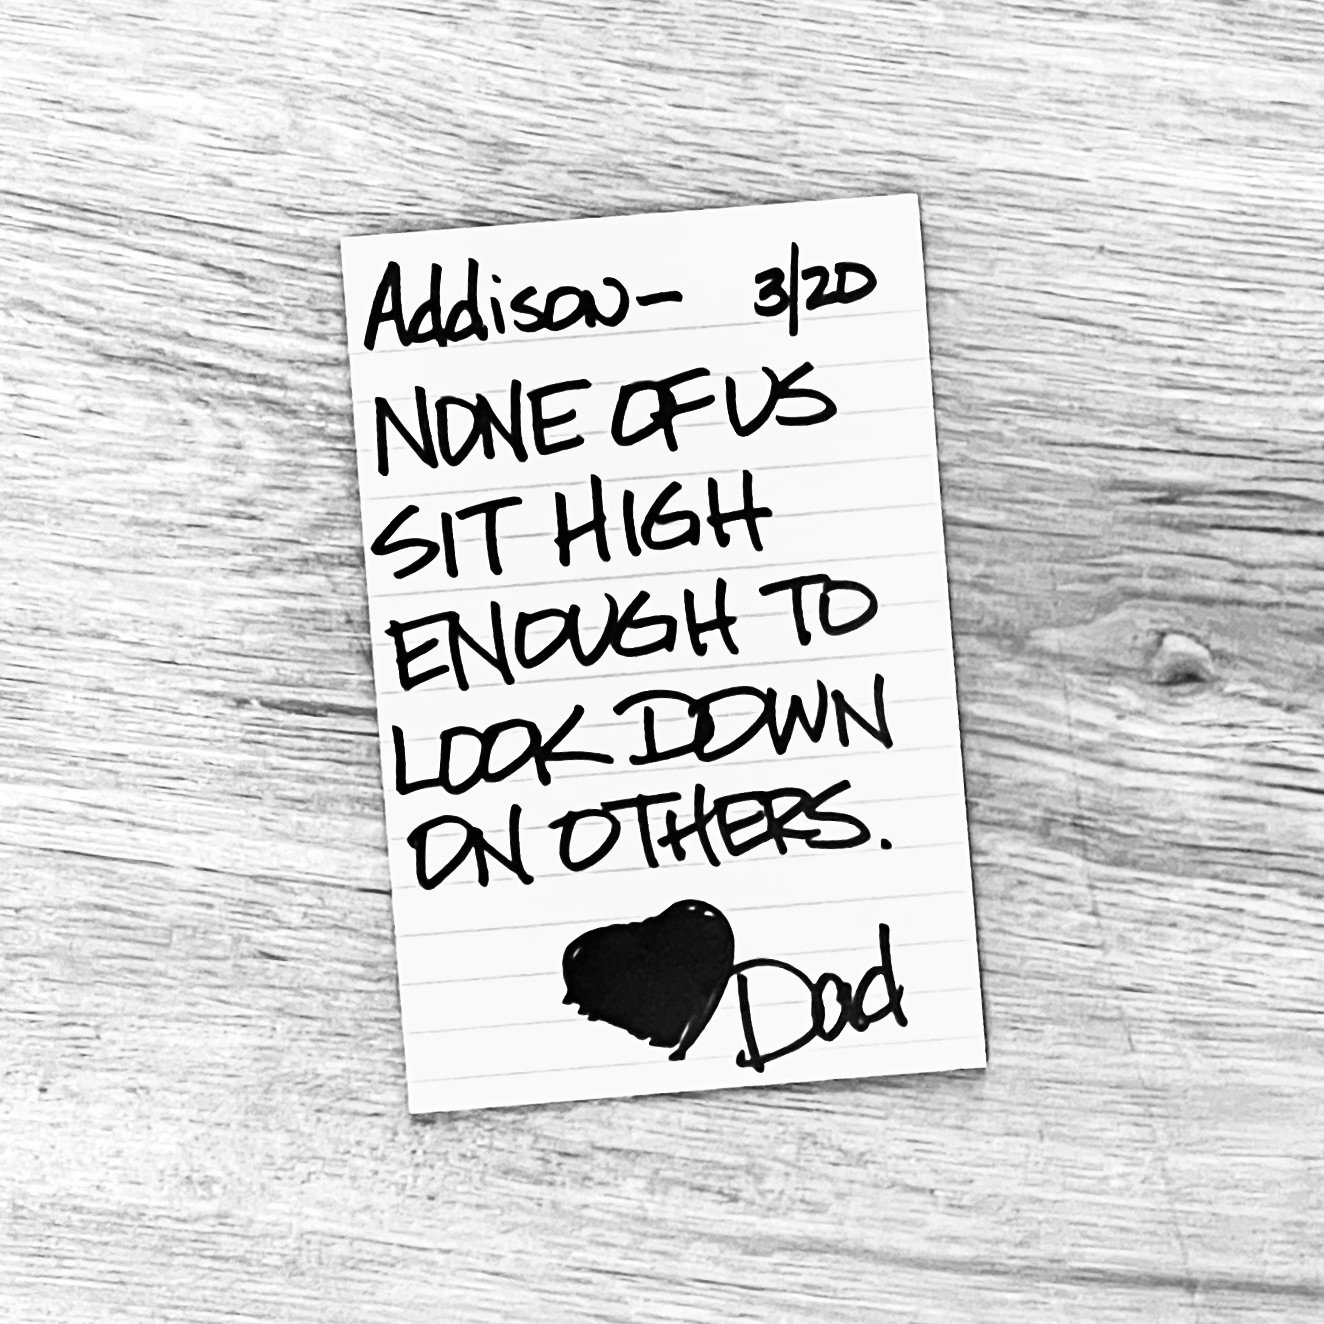 Addison- 3/20
NONE OF US
SIT HIGH
ENOUGH TO
LOOK DOWN
ON OTHERS.
Dad